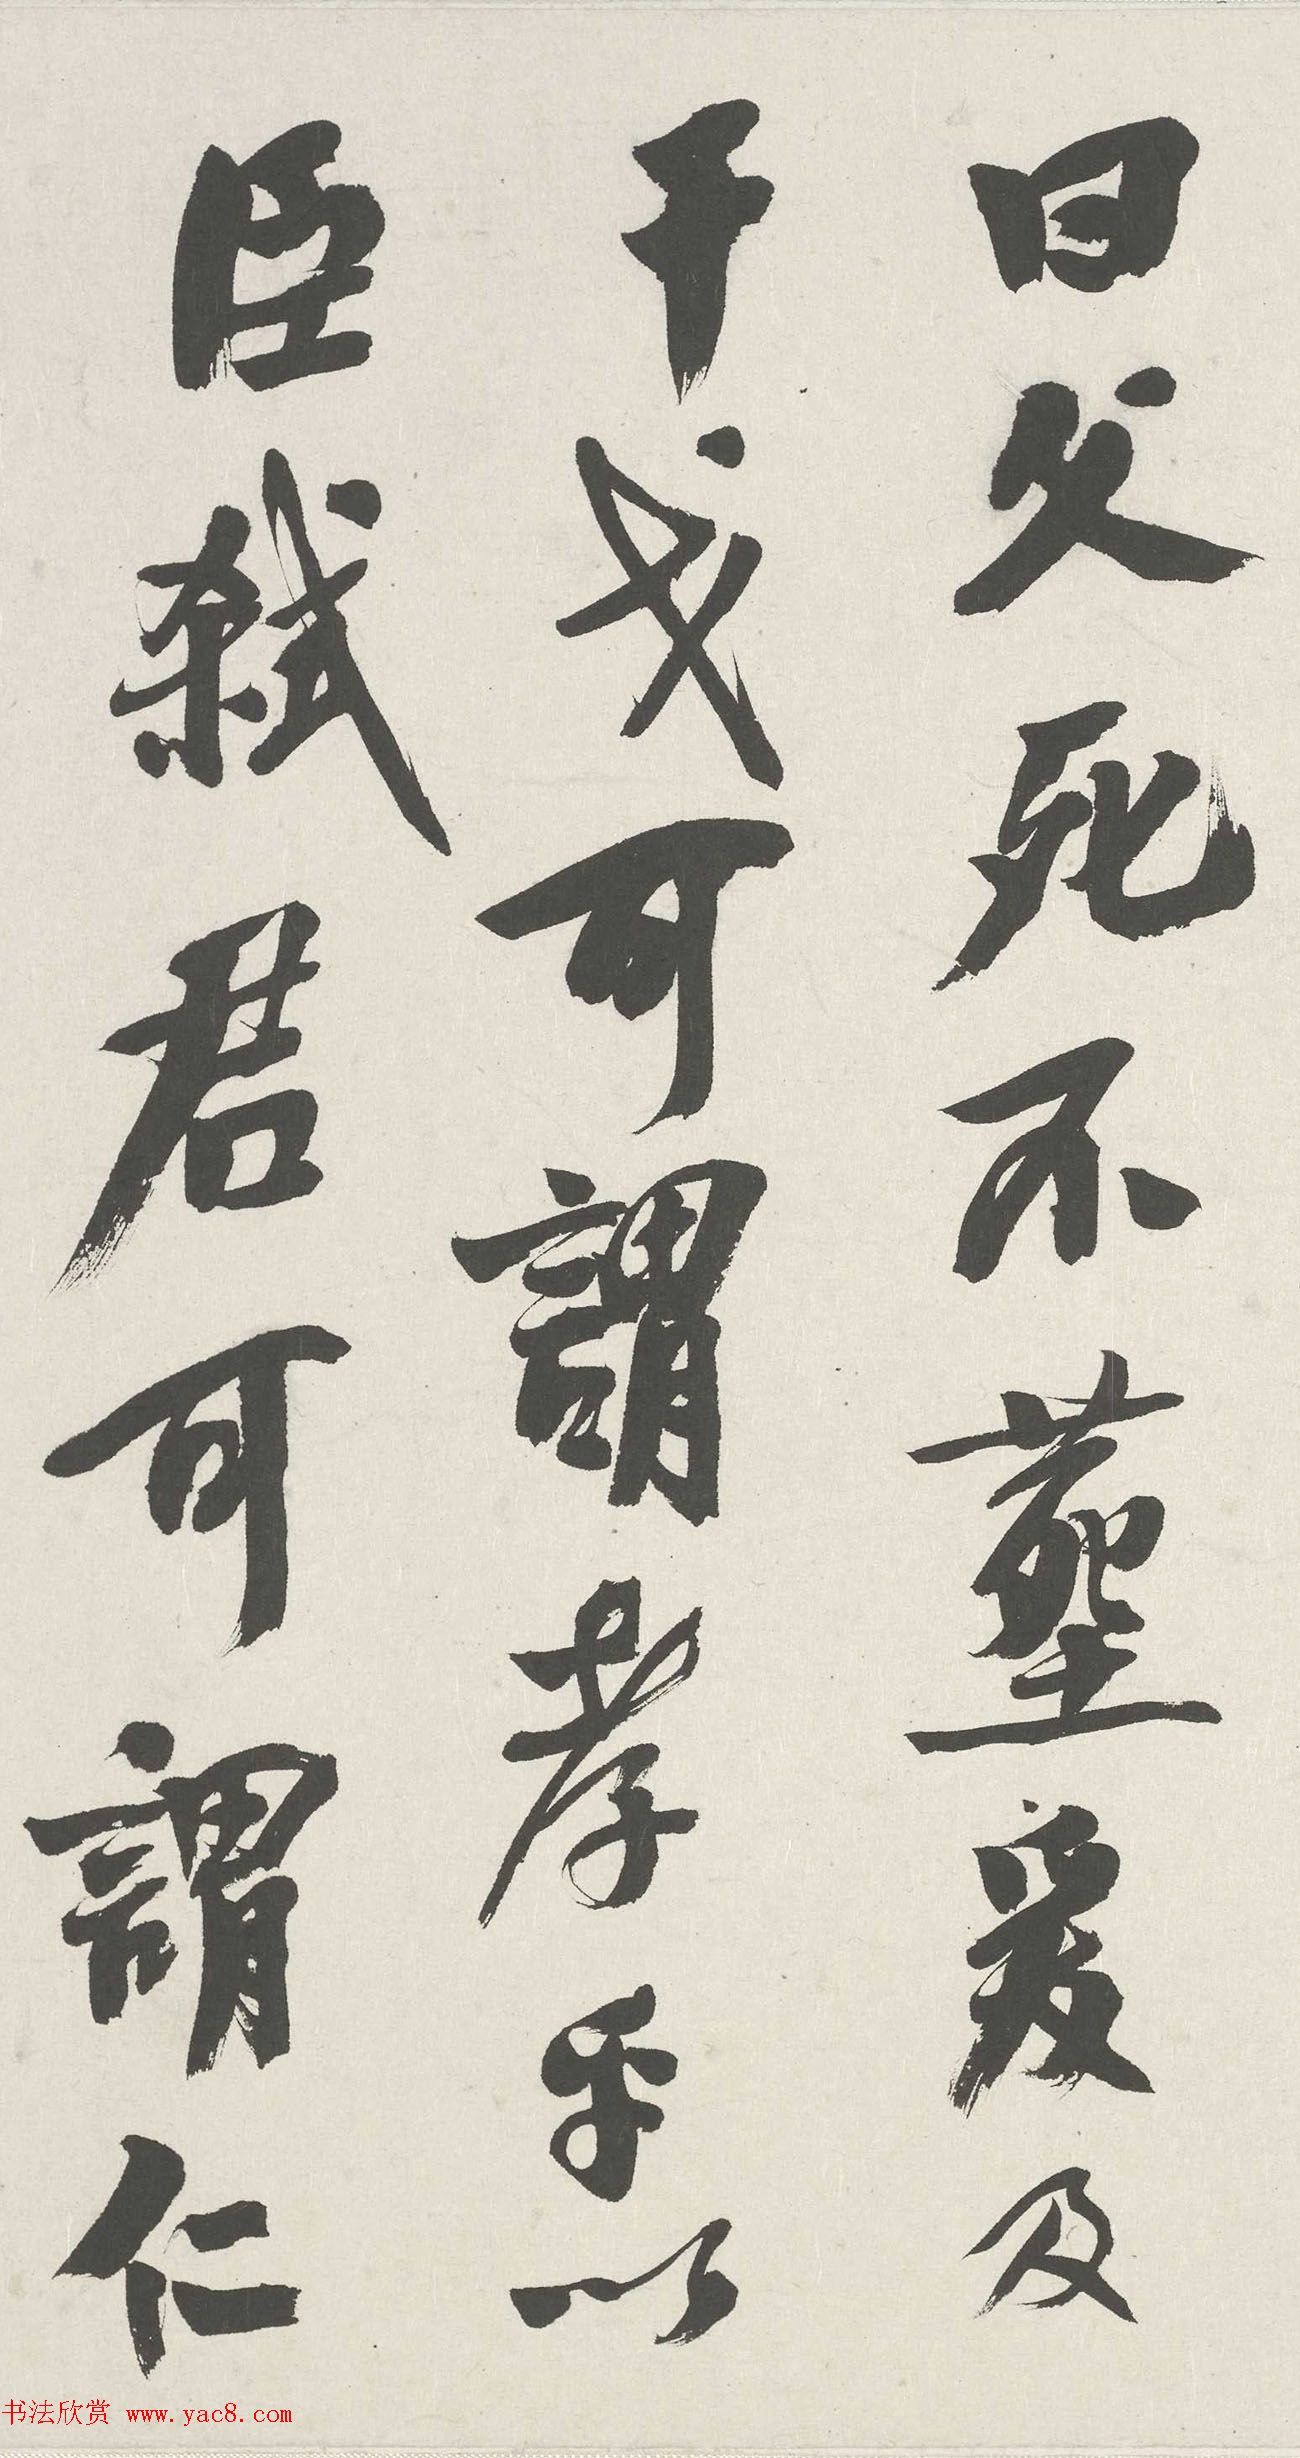 曰父死不葬爰及
干戈可謂孝乎以
臣弒君可謂仁
书法欣赏 www.yac8.com